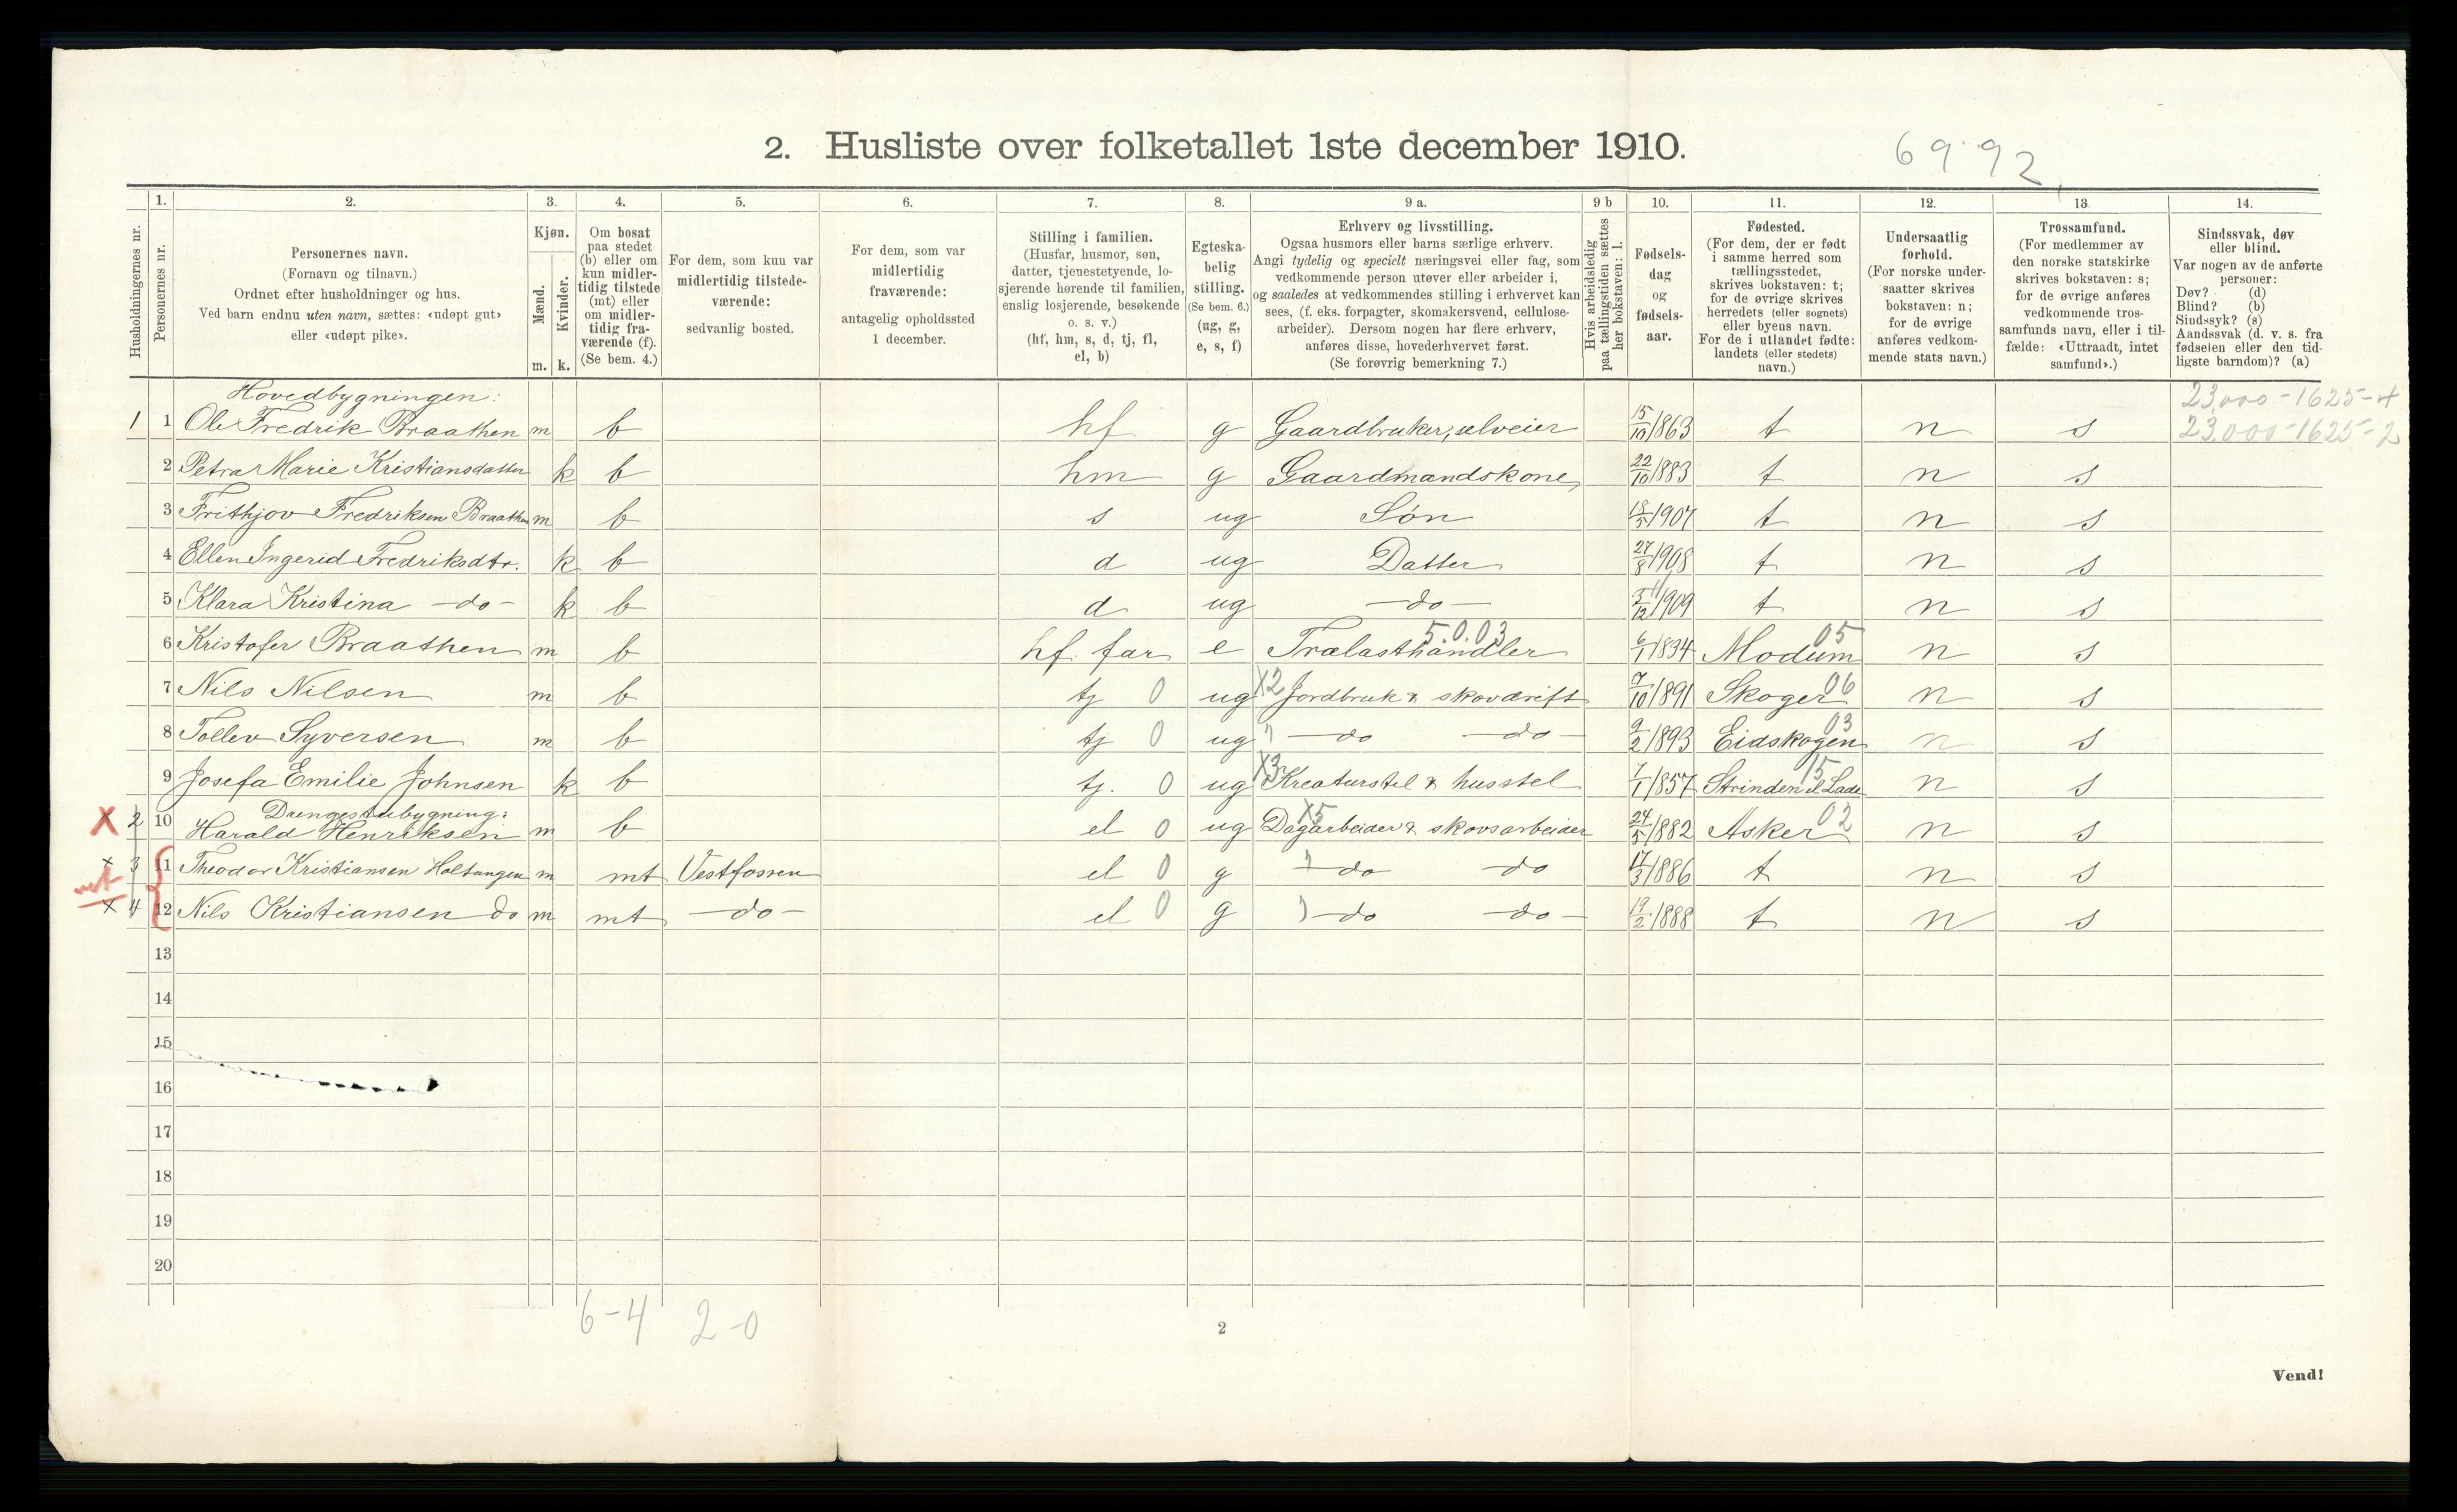 2. Husliste over folketallet 1ste december 1910.
6992
Husholdningernes nr.
1.
Personernes nr.
2.
Personernes navn.
(Fornavn og tilnavn.)
Ordnet efter husholdninger og hus.
Ved barn endnu uten navn, sættes: «udøpt gut»
eller «udøpt pike».
3.
Kjøn.
Mænd.
Kvinder.
m. k.
4.
Om bosat
paa stedet
(b) eller om
kun midler-
tidig tilstede
(mt) eller
om midler-
tidig fra-
værende (f).
(Se bem. 4.)
5.
For dem, som kun var
midlertidig tilstede-
værende:
sedvanlig bosted.
6.
For dem, som var
midlertidig
fraværende:
antagelig opholdssted
1 december.
7.
Stilling i familien.
(Husfar, husmor, søn,
datter, tjenestetyende, lo-
sjerende hørende til familien,
enslig losjerende, besøkende
o. s. v.)
(hf, hm, s, d, tj, fl,
el, b)
8.
Egteska-
belig
stilling.
(Se bem. 6.)
(ug, g,
e, s, f)
9 a.
Erhverv og livsstilling.
Ogsaa husmors eller barns særlige erhverv.
Angi tydelig og specielt næringsvei eller fag, som
vedkommende person utøver eller arbeider i,
og saaledes at vedkommendes stilling i erhvervet kan
sees, (f. eks. forpagter, skomakersvend, cellulose-
arbeider). Dersom nogen har flere erhverv,
anføres disse, hovederhvervet først.
(Se forøvrig bemerkning 7.)
9 b
Hvis arbeidsledig
paa tællingstiden sættes
her bokstaven: l.
10.
Fødsels-
dag
og
fødsels-
aar.
11.
Fødested.
(For dem, der er født
i samme herred som
tællingsstedet,
skrives bokstaven: t;
for de øvrige skrives
herredets (eller sognets)
eller byens navn.
For de i utlandet fødte:
landets (eller stedets)
navn.)
12.
Undersaatlig
forhold.
(For norske under-
saatter skrives
bokstaven: n;
for de øvrige
anføres vedkom-
mende stats navn.)
13.
Trossamfund.
(For medlemmer av
den norske statskirke
skrives bokstaven: s;
for de øvrige anføres
vedkommende tros-
samfunds navn, eller i til-
fælde: «Uttraadt, intet
samfund».)
14.
Sindssvak, døv
eller blind.
Var nogen av de anførte
personer:
Døv? (d)
Blind? (b)
Sindssyk? (s)
Aandssvak (d. v. s. fra
fødselen eller den tid-
ligste barndom)? (a)
Hovedbygningen:
23,000-1625-4
1 1 Ole Fredrik Braathen m b hf g Gaardbruker, selveier 15/10 1863 t n s 23,000-1625-2
2 Petra Marie Kristiansdatter k b hm g Gaardmandskone 22/10 1883 t n s
3 Frithjov Fredriksen Braathen m b s ug Søn 18/5 1907 t n s
4 Ellen Ingerid Fredriksdtr. k b d ug Datter 27/8 1908 t n s
5 Klara Kristina -do- k b d ug -do- 5/12 1909 t n s
5.0.03 05
6 Kristofer Braathen m b hf. far e Trælasthandler 6/1 1834 Modum n s
7 Nils Nilsen m b tj 0 ug X2 Jordbruk & skovdrift 7/10 1891 Skoger 06 n s
8 Tollev Syversen m b tj 0 ug " do do 9/2 1893 Eidskogen 03 n s
9 Josefa Emilie Johnsen k b tj. 0 ug X3 Kreaturstel & husstel 7/1 1857 Strinden el Lade 15 n s
Drengestubygning:
X 2 10 Harald Henriksen m b el 0 ug X5 Dagarbeider & skovsarbeider 24/5 1882 Asker 02 n s
x 3 11 Theodor Kristiansen Holtungen m mt Vestfossen el 0 g " do do 17/3 1886 t n s
mt
x 4 12 Nils Kristiansen do m mt -do- el 0 g " do do 19/2 1888 t n s
13
14
15
16
17
18
19
20
6-4 2-0
2
Vend!